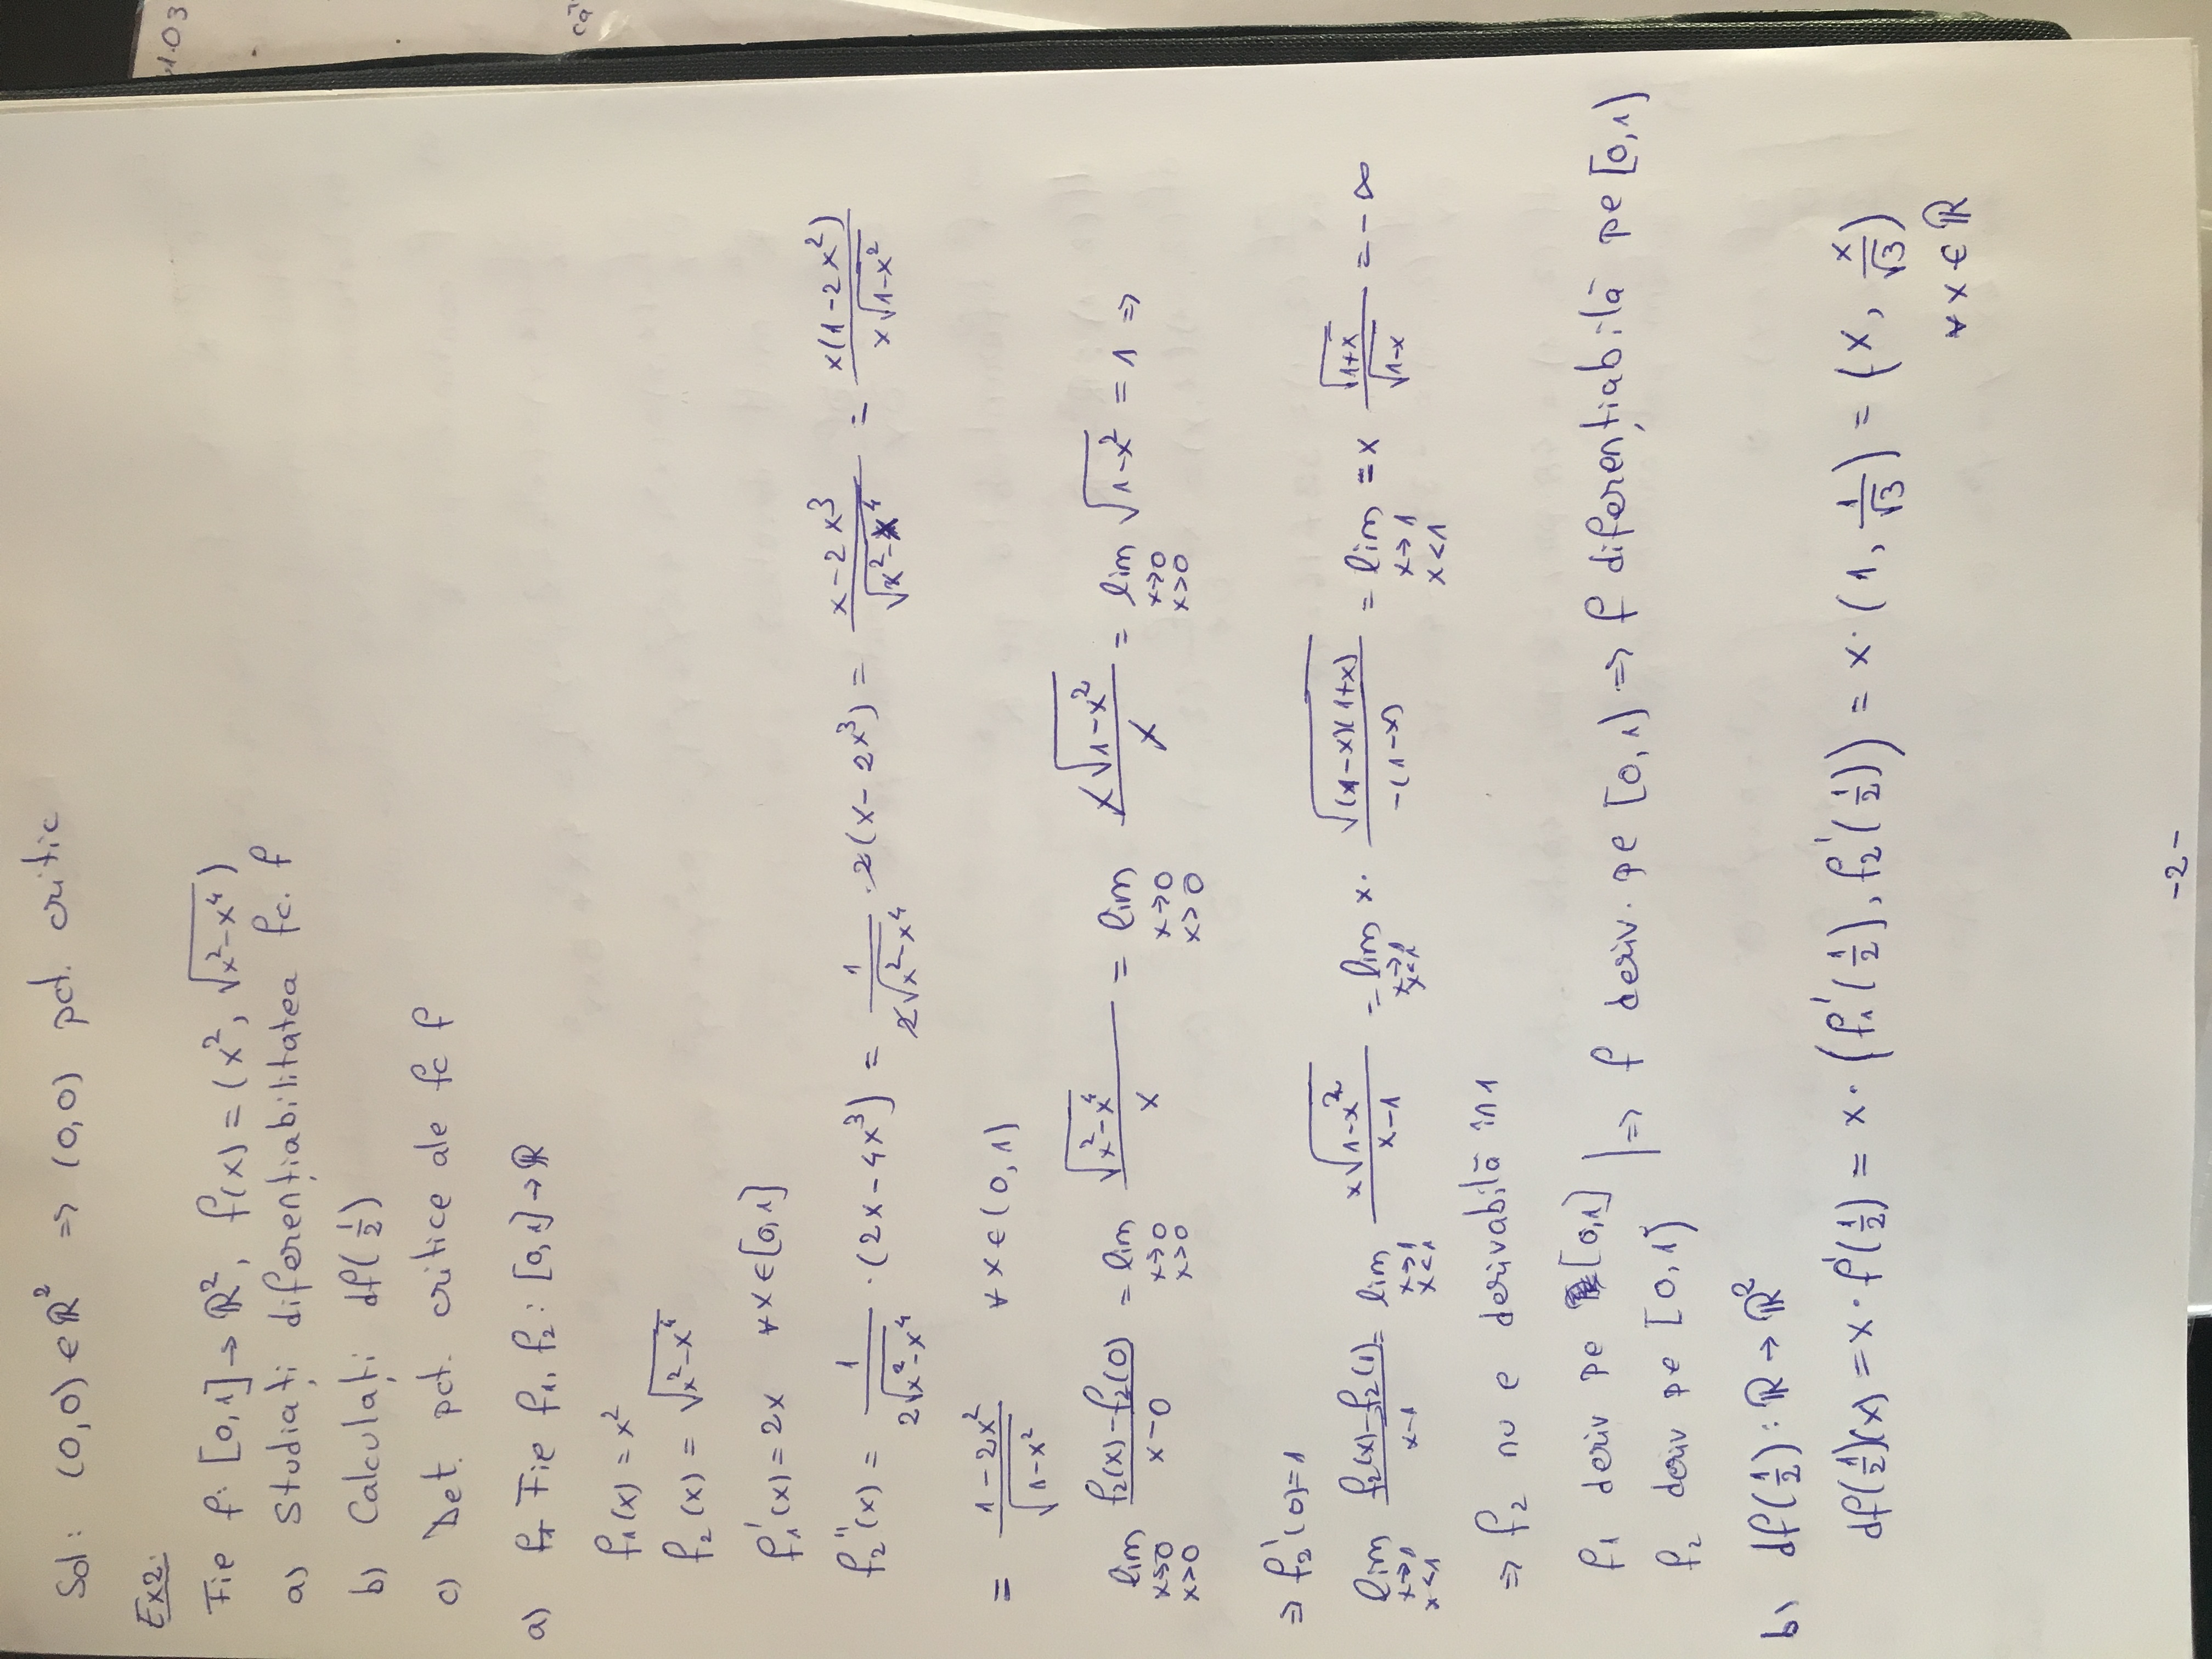 Sol: (0,0) ∈ ℝ² => (0,0) pct. critic
Ex2:
Fie f: [0,1] → ℝ², f(x) = (x², √(x²-x⁴))
a) Studiați diferențiabilitatea fc. f
b) Calculați df(1/2)
c) Det. pct. critice ale fc f
a) Fie f₁, f₂ : [0,1] → ℝ
f₁(x) = x²
f₂(x) = √(x²-x⁴)
f₁'(x) = 2x ∀x ∈ [0,1]
f₂''(x) = 1/(2√(x²-x⁴)) · (2x-4x³) = 1/(2√(x²-x⁴)) · 2(x-2x³) = (x-2x³)/√(x²-x⁴) = x(1-2x²)/(x√(1-x²))
= (1-2x²)/√(1-x²) ∀x ∈ (0,1)
lim x→0 x>0 (f₂(x)-f₂(0))/(x-0) = lim x→0 x>0 √(x²-x⁴)/x = lim x→0 x>0 x√(1-x²)/x = lim x→0 x>0 √(1-x²) = 1 =>
=> f₂'(0)=1
lim x→1 x<1 (f₂(x)-f₂(1))/(x-1) = lim x→1 x<1 x√(1-x²)/(x-1) = lim x→1 x<1 x· √((1-x)(1+x))/(-(1-x)) = lim x→1 x<1 = x √(1+x)/√(1-x) = -∞
=> f₂ nu e derivabilă în 1
f₁ deriv pe [0,1]
f₂ deriv pe [0,1) | => f deriv. pe [0,1) => f diferențiabilă pe [0,1)
b) df(1/2) : ℝ → ℝ²
df(1/2)(x) = x · f'(1/2) = x · (f₁'(1/2), f₂'(1/2)) = x · (1, 1/√3) = (x, x/√3)
∀ x ∈ ℝ
-2-
1.03
că